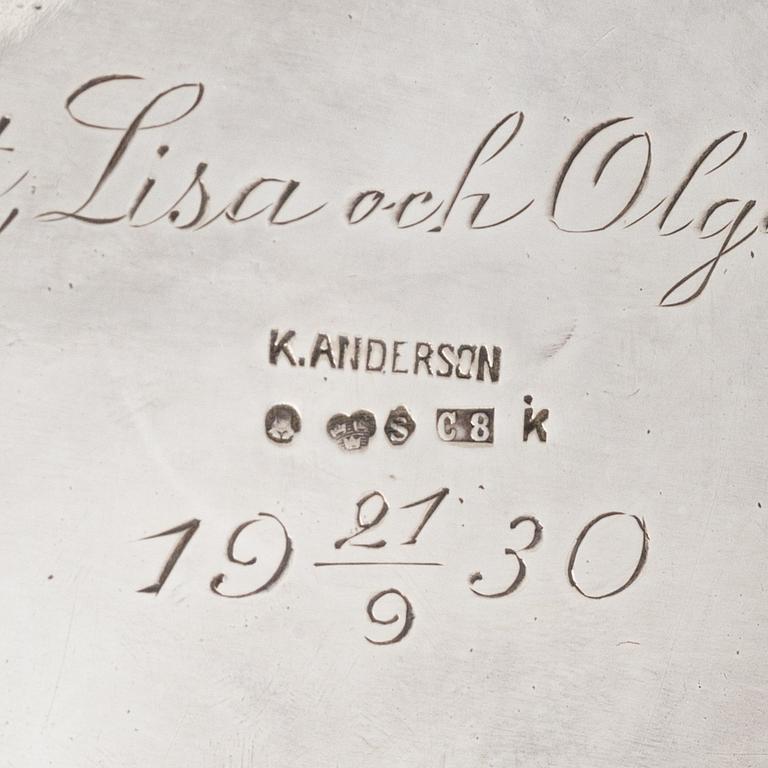 Lisa och Olg
K. ANDERSON
S C8 K
19 21/9 30